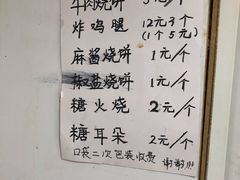 牛肉烧饼 5元/个
炸鸡腿 12元3个
(1个5元)
麻酱烧饼 1元/个
椒盐烧饼 1元/个
糖火烧 2元/个
糖耳朵 2元/个
口袋二次包装收费 谢谢!!!